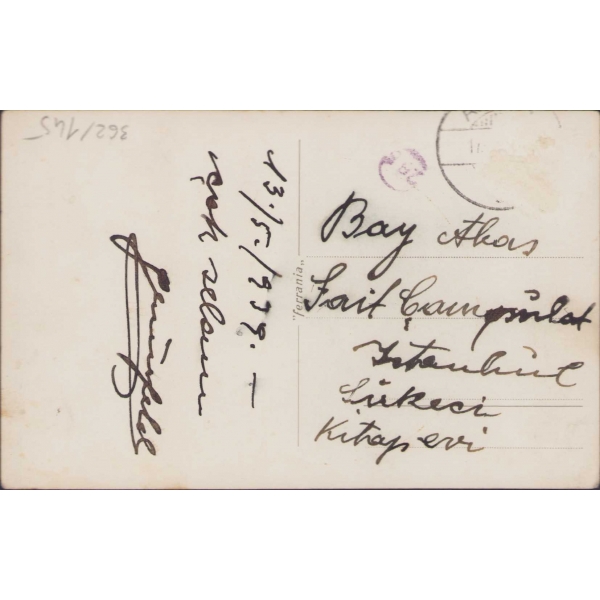 362/145
13/5/939.—
çok selam
"ferrania"
28
Bay Akas
Sait Çampulat
Istanbul
Sirkeci
Kitapevi